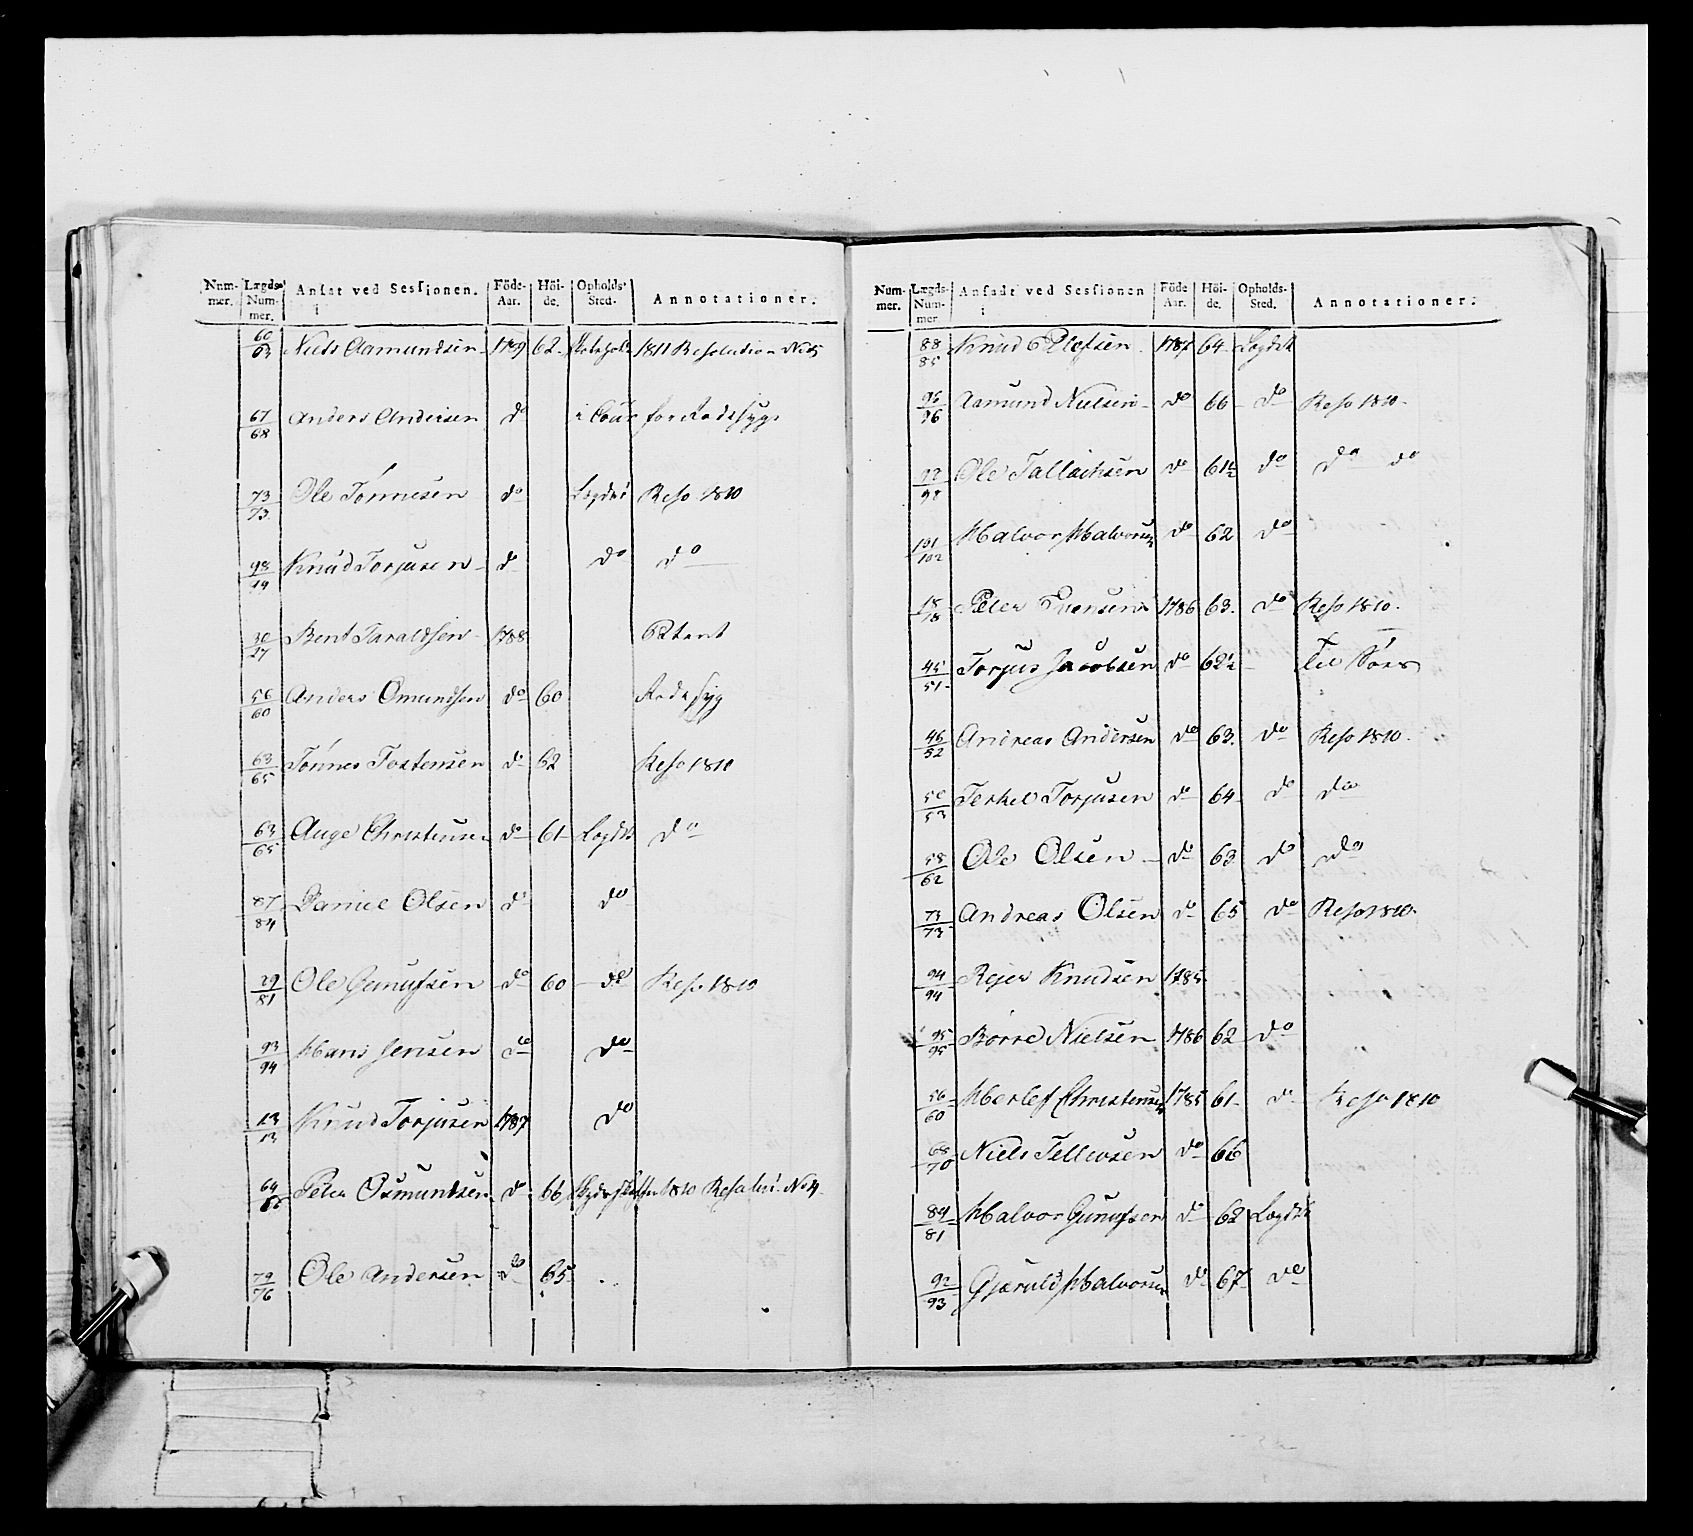 Num-mer. Lægds-Num-mer. Ansat ved Sessionen. i Föde-Aar. Höi-de. Opholds-Sted. Annotationer.
60/63 Niels Aamundsen 1789 62 1811 Resolution No 5
67/68 Anders Andersen do i Cour for Radesyge
73/73 Ole Tönnesen do Lægdet Reso 1810
98/99 Knud Torjusen do do do
30/27 Bent Taraldsen 1788 Patent
56/60 Anders Omundsen do 60 Radesyg
63/65 Tönnes Tostensen do 62 Reso 1810
63/65 Auge Christensen do 61 Lægdet do
87/84 Daniel Olsen do do
29/81 Ole Gunufsen do 60 do Reso 1810
93/94 Hans Jensen do do
13/13 Knud Torjusen 1787 do
64/66 Peter Osmundsen do 66 1810 Resoluti. No 4
79/76 Ole Andersen do 65
Num-mer. Lægds-Num-mer. Ansadt ved Sessionen i Föde Aar. Höi-de. Opholds-Sted. Annotationer.
88/85 Knud Olefsen 1787 64 Lægdet
96/96 Aamund Nielsen do 66 do Reso 1810
99/98 Ole Tallachsen do 61½ do do do
101/102 Halvor Halvorsen do 62 do
18/18 Peter Svensen 1786 63 do Reso 1810
45/51 Torjus Jacobsen do 62½ Til Söes
46/52 Andreas Andersen do 63 do Reso 1810
50/53 Terkel Torjusen do 64 do do
58/62 Ole Olsen do 63 do do
73/73 Andreas Olsen do 65 do Reso 1810
94/94 Rejer Knudsen 1785
95/95 Börre Nielsen 1786 62 do
56/60 Herlef Christensen 1785 61 do Reso 1810
68/70 Niels Tellevsen do 66
89/81 Halvor Gunufsen do 62 Lægdet
92/93 Gjeruld Halvorsen do 67 do